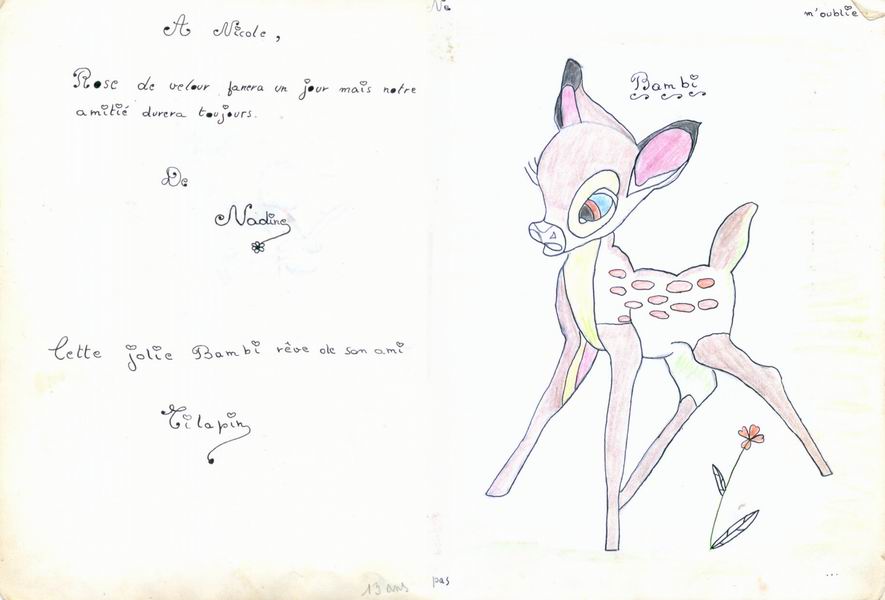 A Nicole,
Rose de velour fanera un jour mais notre
amitié durera toujours.
De
Nadine
Cette jolie Bambi rêve de son ami
Tilapin
13 ans
Ne
m'oublie
Bambi
pas
...